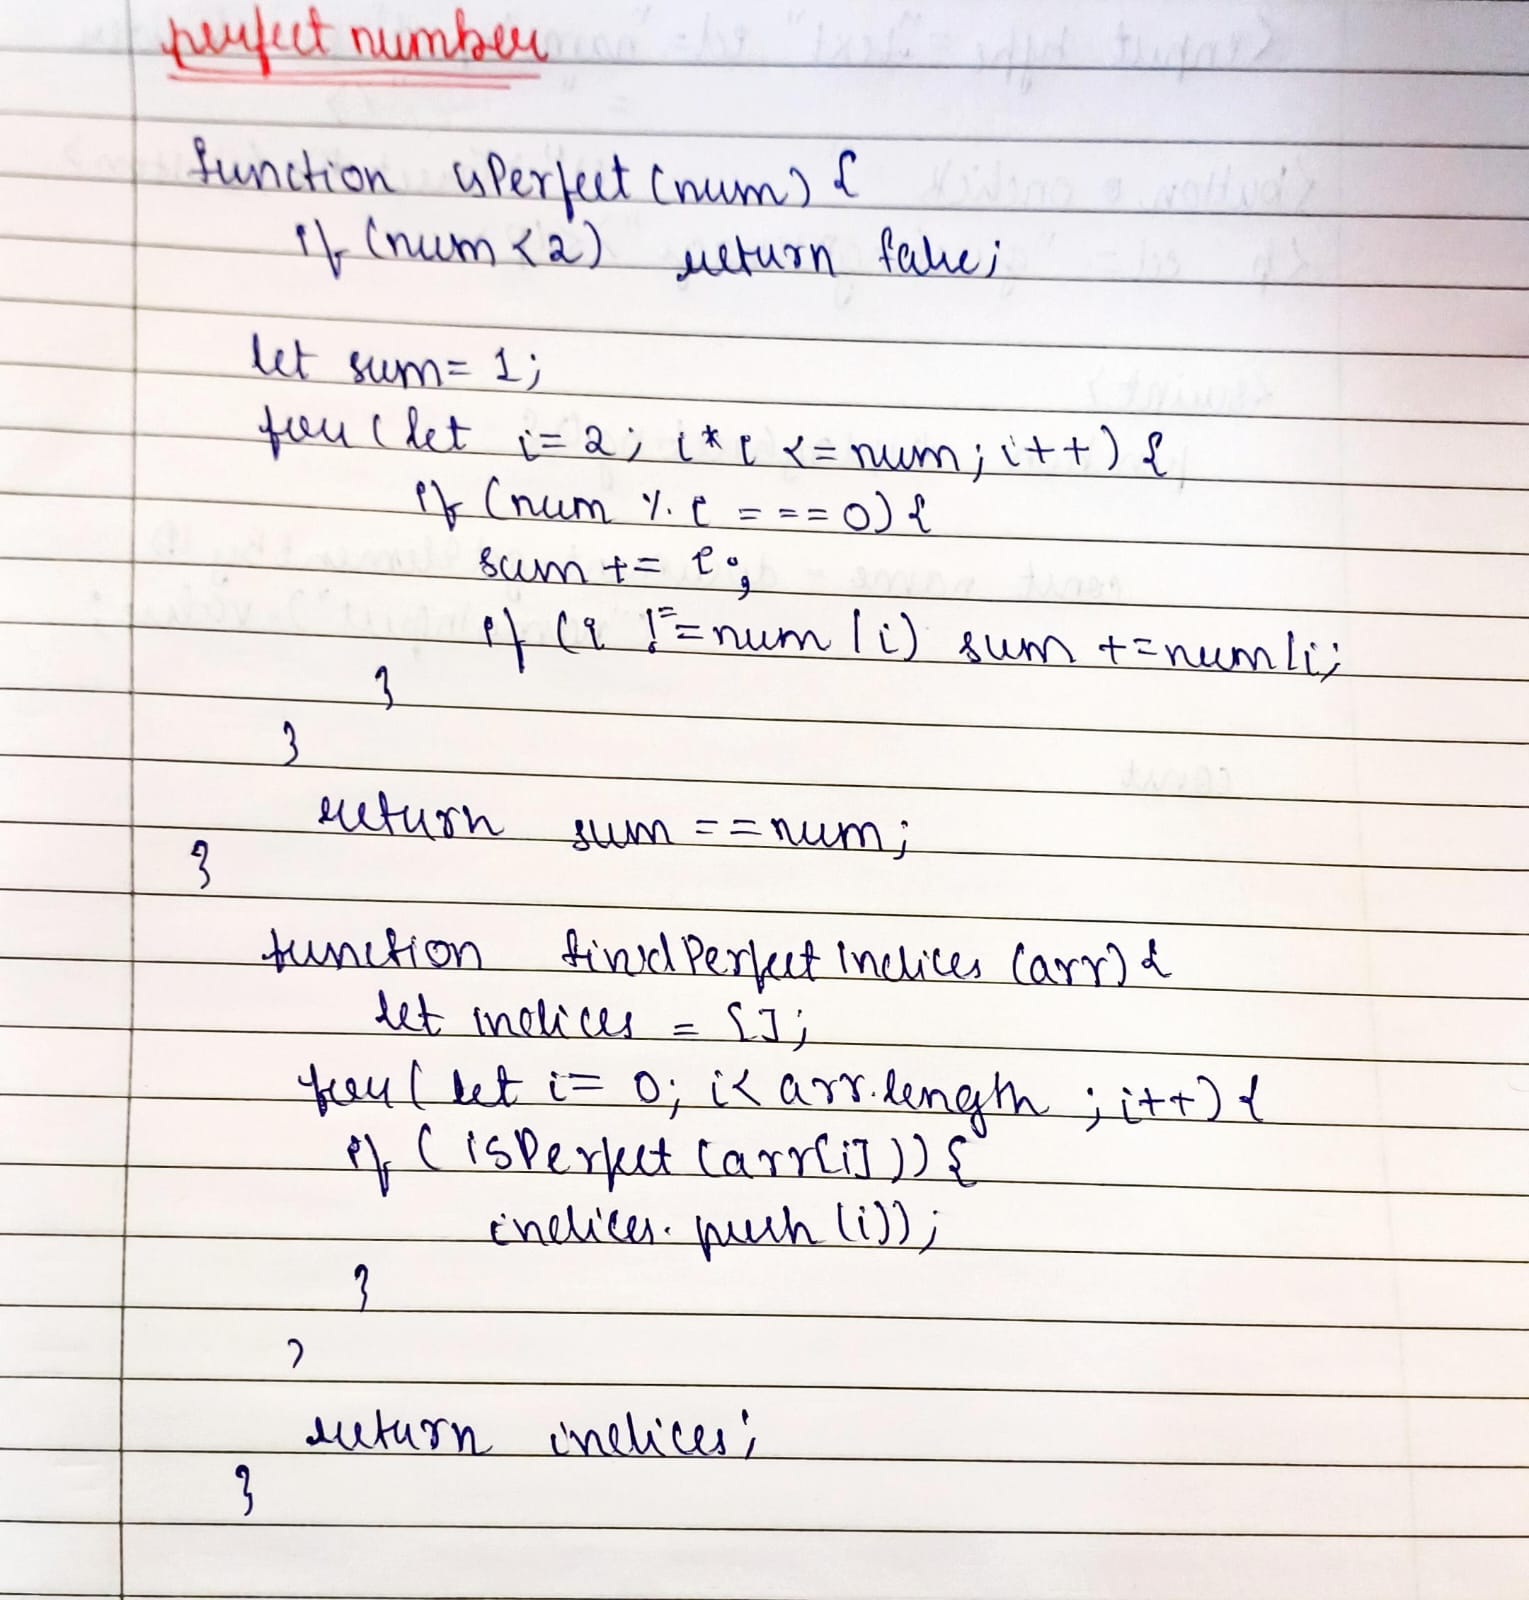 perfect number
function isPerfect (num) {
if (num < 2) return false;
let sum = 1;
for (let i = 2; i * i <= num; i++) {
if (num % i === 0) {
sum += i;
if (i !== num / i) sum += num / i;
}
}
return sum == num;
}
function findPerfectIndices (arr) {
let indices = [];
for (let i = 0; i < arr.lengh ; i++) {
if (isPerfect (arr[i])) {
indices.push (i));
}
}
return indices;
}